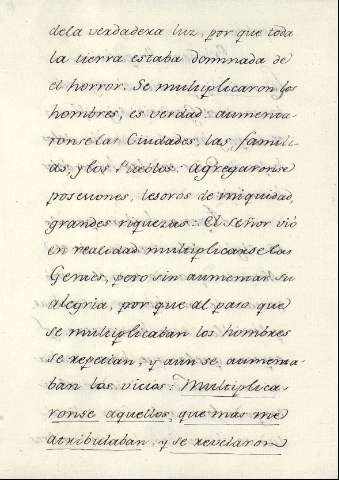 dela verdadera luz, por que toda
la tierra estaba dominada de
el horror. Se multiplicaron los
hombres, es verdad: aumenta-
ronse las Ciudades, las famili-
as, y los Pueblos: Agregaronse
posesiones, tesoros de iniquidad,
grandes riquezas: El Señor vió
en realidad multiplicarse las
Gentes, pero sin aumentar su
alegria, por que al paso que
se multiplicaban los hombres
se repetian, y aun se aumenta-
ban los vicios: Multiplica-
ronse aquellos, que mas me
atribulaban, y se revelaron